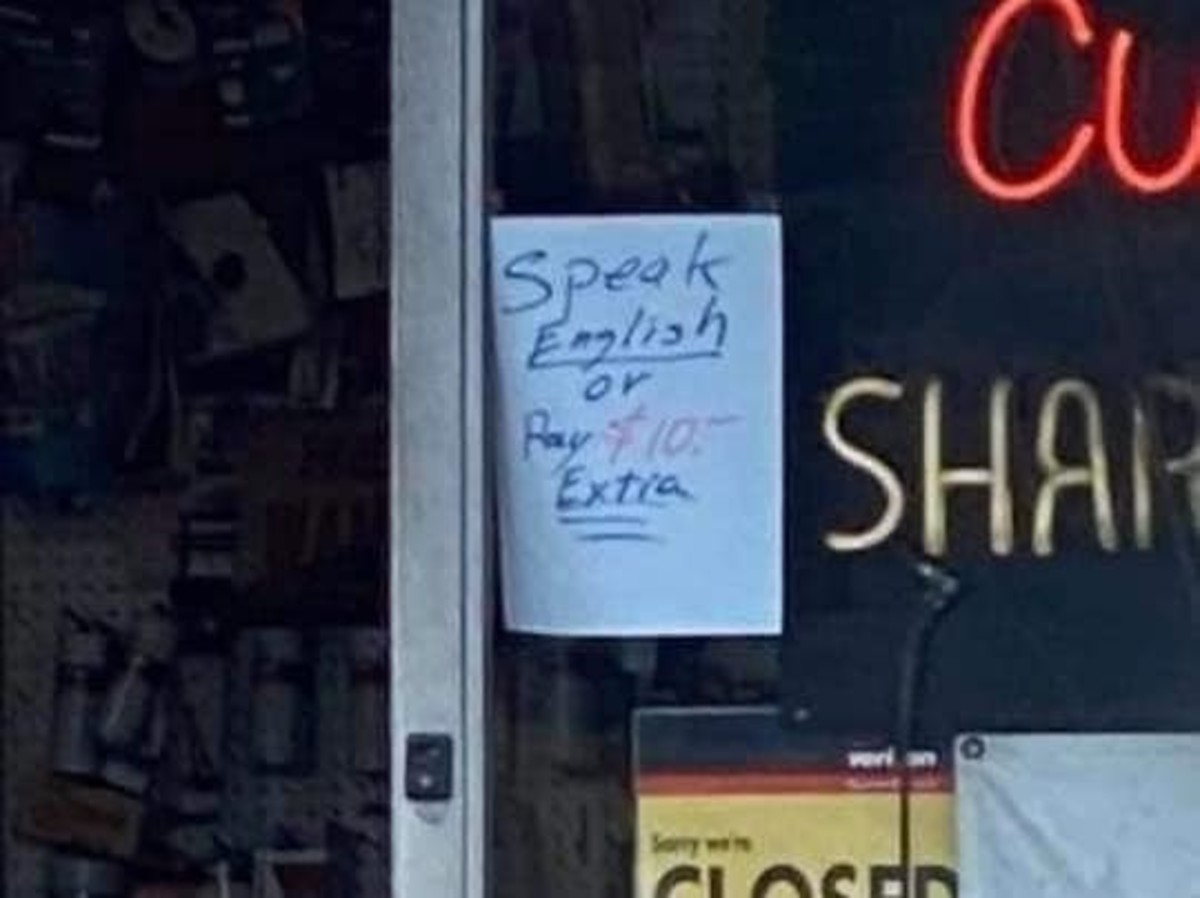 Cu
Speak
English
or
Pay $10.-
Extra
SHAR
verizon
Sorry we're
CLOSED